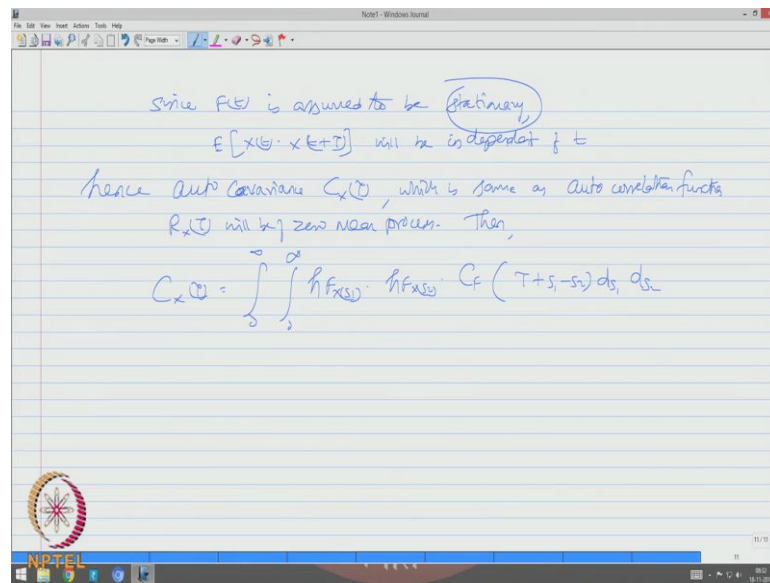 Note1 - Windows Journal
File Edit View Insert Actions Tools Help
Page Width
Since F(t) is assumed to be stationary,
E[x(t). x(t+τ)] will be independent of t
hence auto covariance Cx(τ), which is same as auto correlation function
Rx(τ) will be of zero mean process. Then,
Cx(τ) = ∫₀^∞ ∫₀^∞ hFx(s1). hFx(s2). CF (τ+s1-s2) ds1 ds2
NPTEL
11/11
11